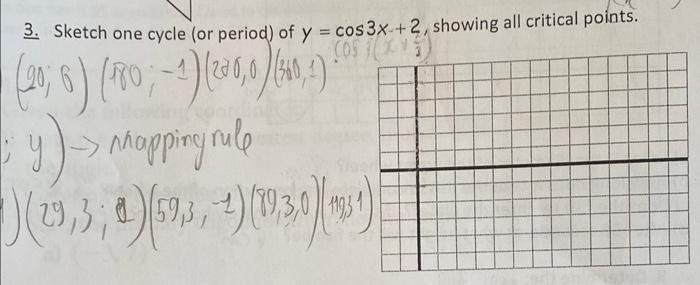 3. Sketch one cycle (or period) of y = cos3x + 2, showing all critical points.
cos 3(x + 2/3)
(90; 0) (180; -1) (270,0) (360,1)
; y) → mapping rule
) (29,3; 0) (59,3, -1) (89,3,0) (119,3 1)